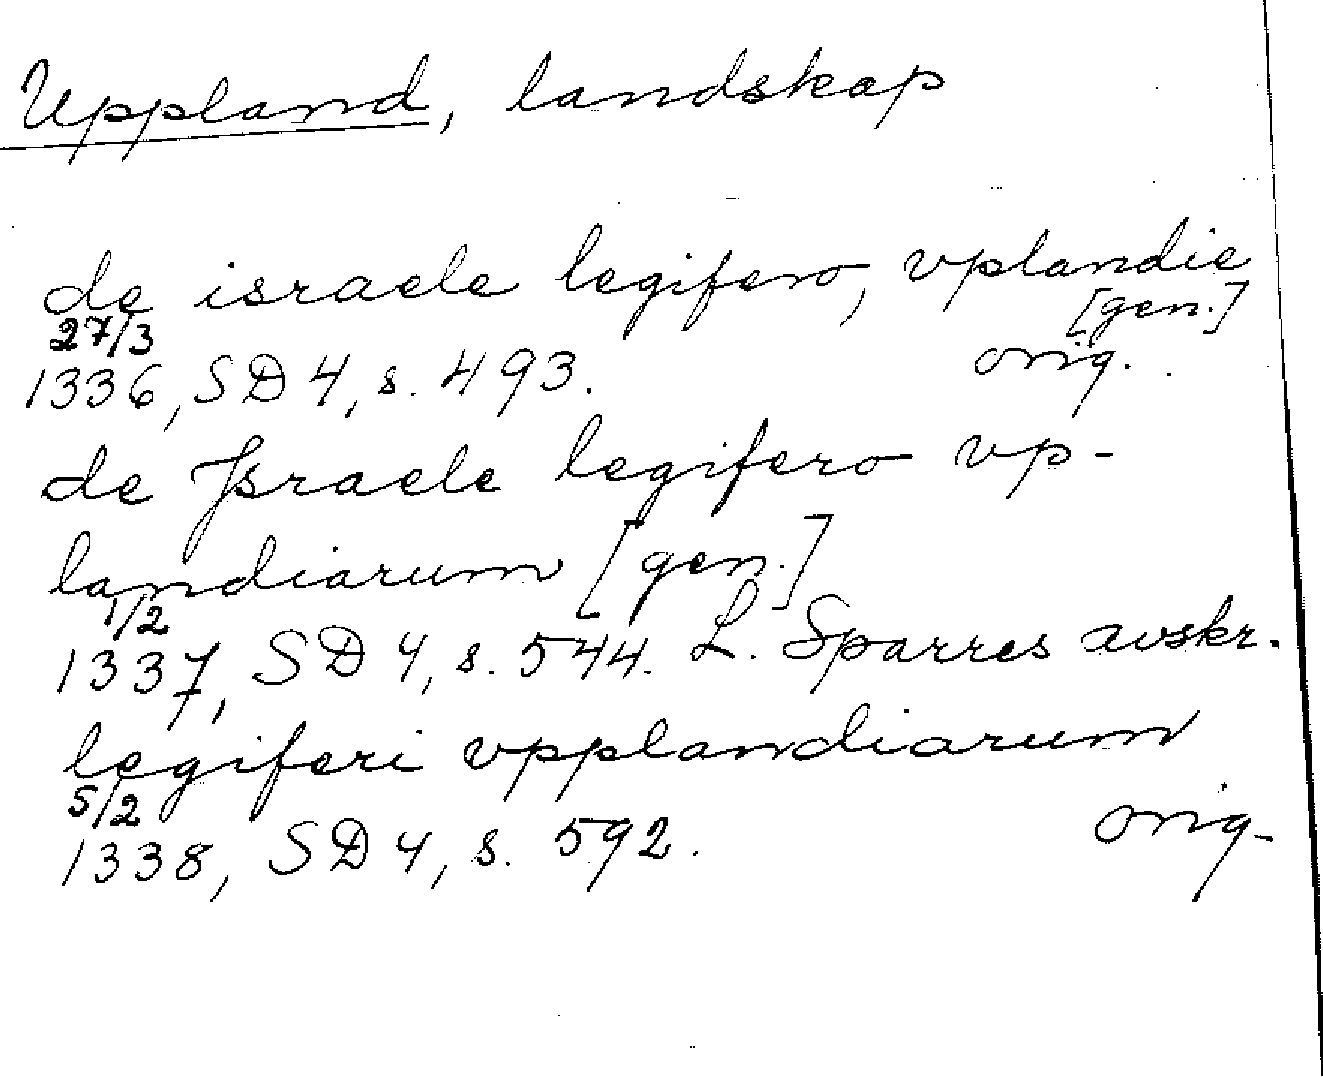 Uppland, landskap
de israele legifero, vplandie
[gen.]
27/3
1336, SD 4, s. 493. orig.
de Israele legifero vp-
landiarum [gen.]
1/2
1337, SD 4, s. 544. L. Sparres avskr.
legiferi vpplandiarum
5/2
1338, SD 4, s. 592. orig.